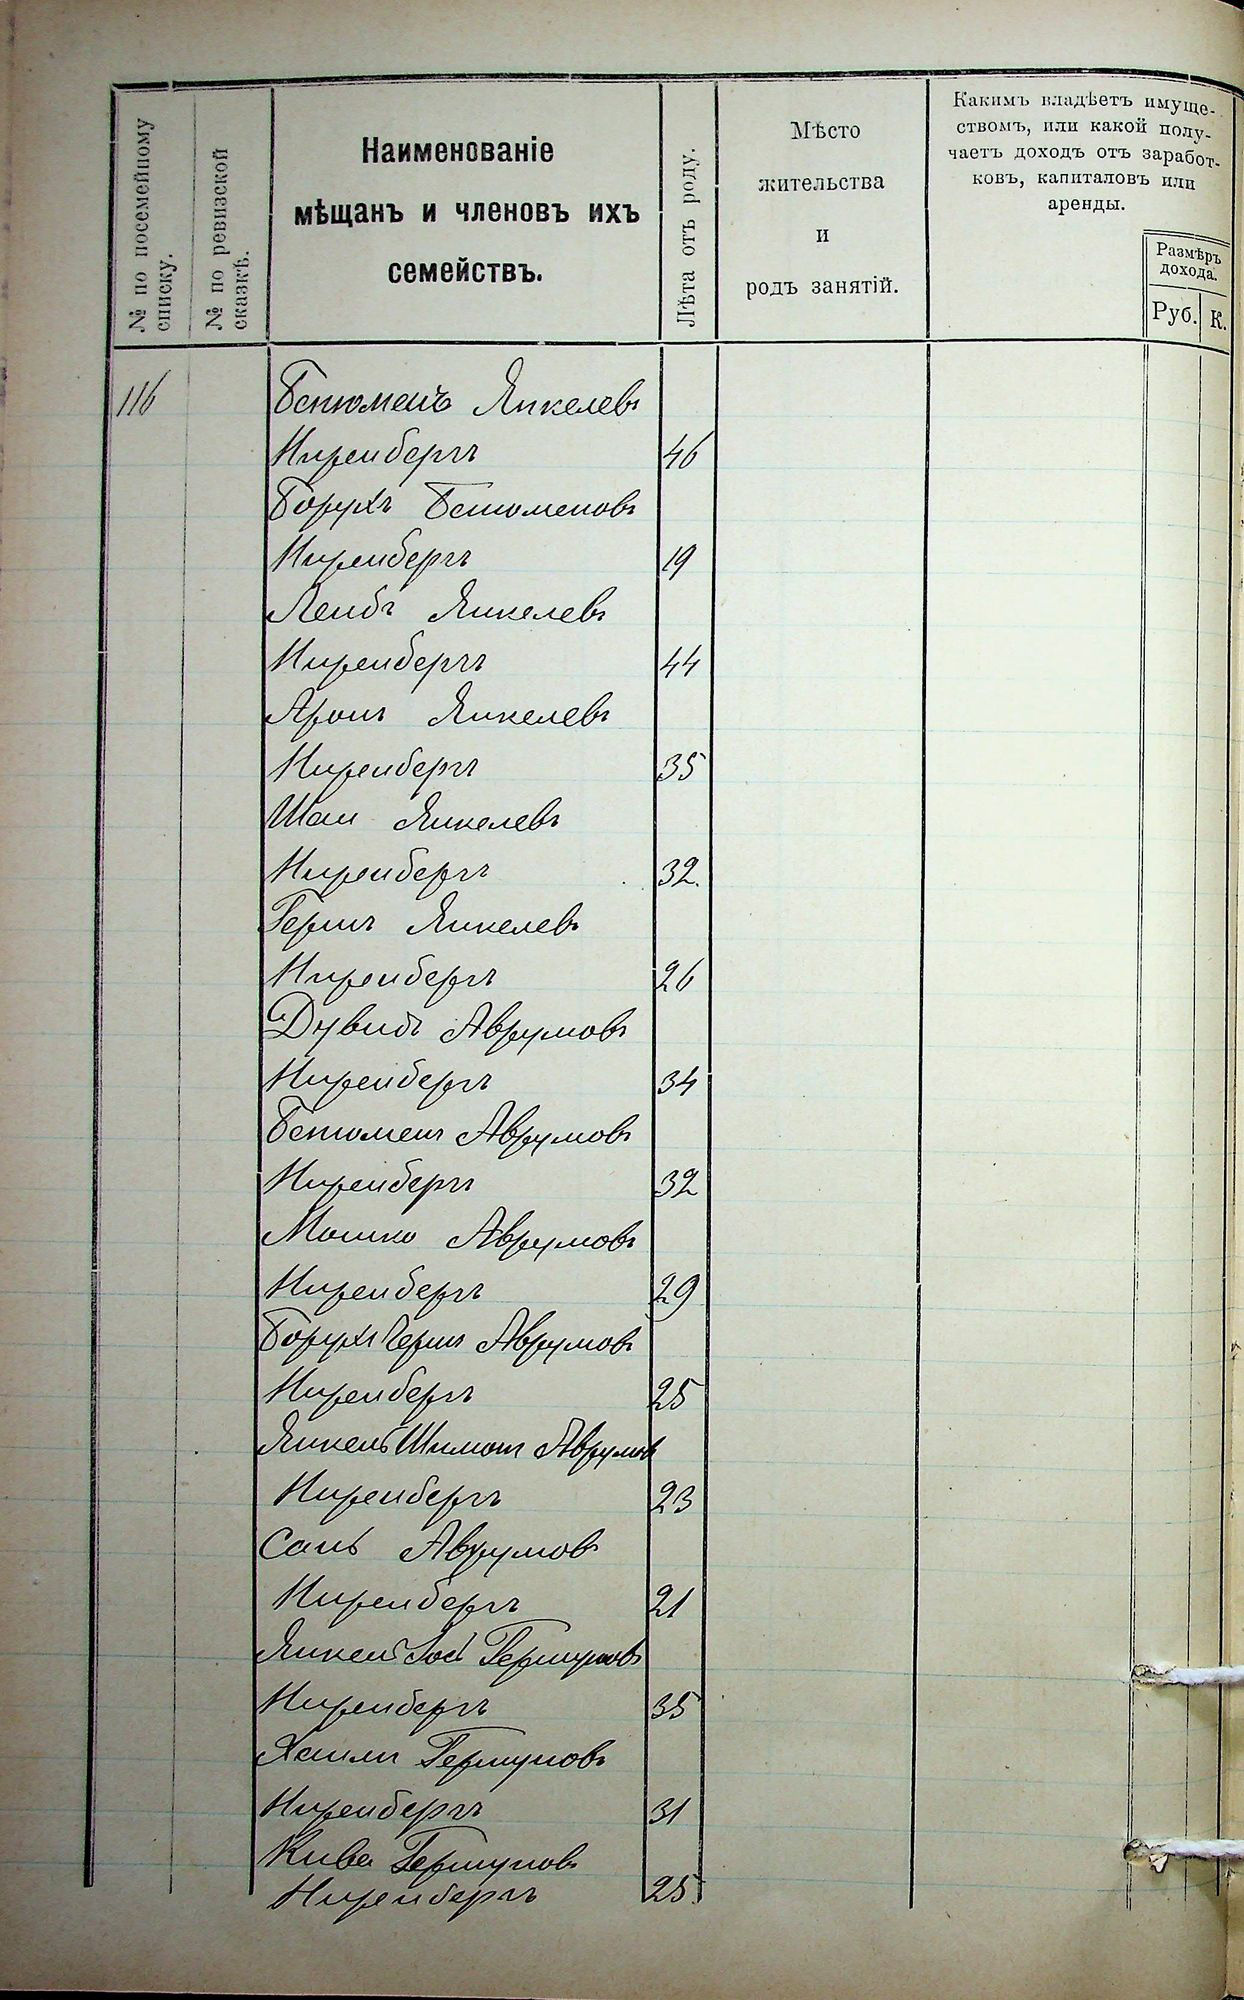 № по посемейному
списку.
№ по ревизской
сказкѣ.
Наименованіе
мѣщанъ и членовъ ихъ
семействъ.
Лѣта отъ роду.
Мѣсто
жительства
и
родъ занятій.
Какимъ владѣетъ имуще-
ствомъ, или какой полу-
чаетъ доходъ отъ заработ-
ковъ, капиталовъ или
аренды.
Размѣръ
дохода.
Руб. К.
116 Бенюменъ Янкелевъ
Ниренбергъ 46
Борухъ Бенюменовъ
Ниренбергъ 19
Лейбъ Янкелевъ
Ниренбергъ 44
Аронъ Янкелевъ
Ниренбергъ 35
Янкелевъ
Ниренбергъ 32
Гершъ Янкелевъ
Ниренбергъ 26
Дувидъ Аврумовъ
Ниренбергъ 34
Бенюменъ Аврумовъ
Ниренбергъ 32
Мошко Аврумовъ
Ниренбергъ 29
Борухъ Гершъ Аврумовъ
Ниренбергъ 25
Янкель Шимонъ Аврумовъ
Ниренбергъ 23
Аврумовъ
Ниренбергъ 21
Янкель Іось Гершуновъ
Ниренбергъ 35
Хаимъ Гершуновъ
Ниренбергъ 31
Кива Гершуновъ
Ниренбергъ 25